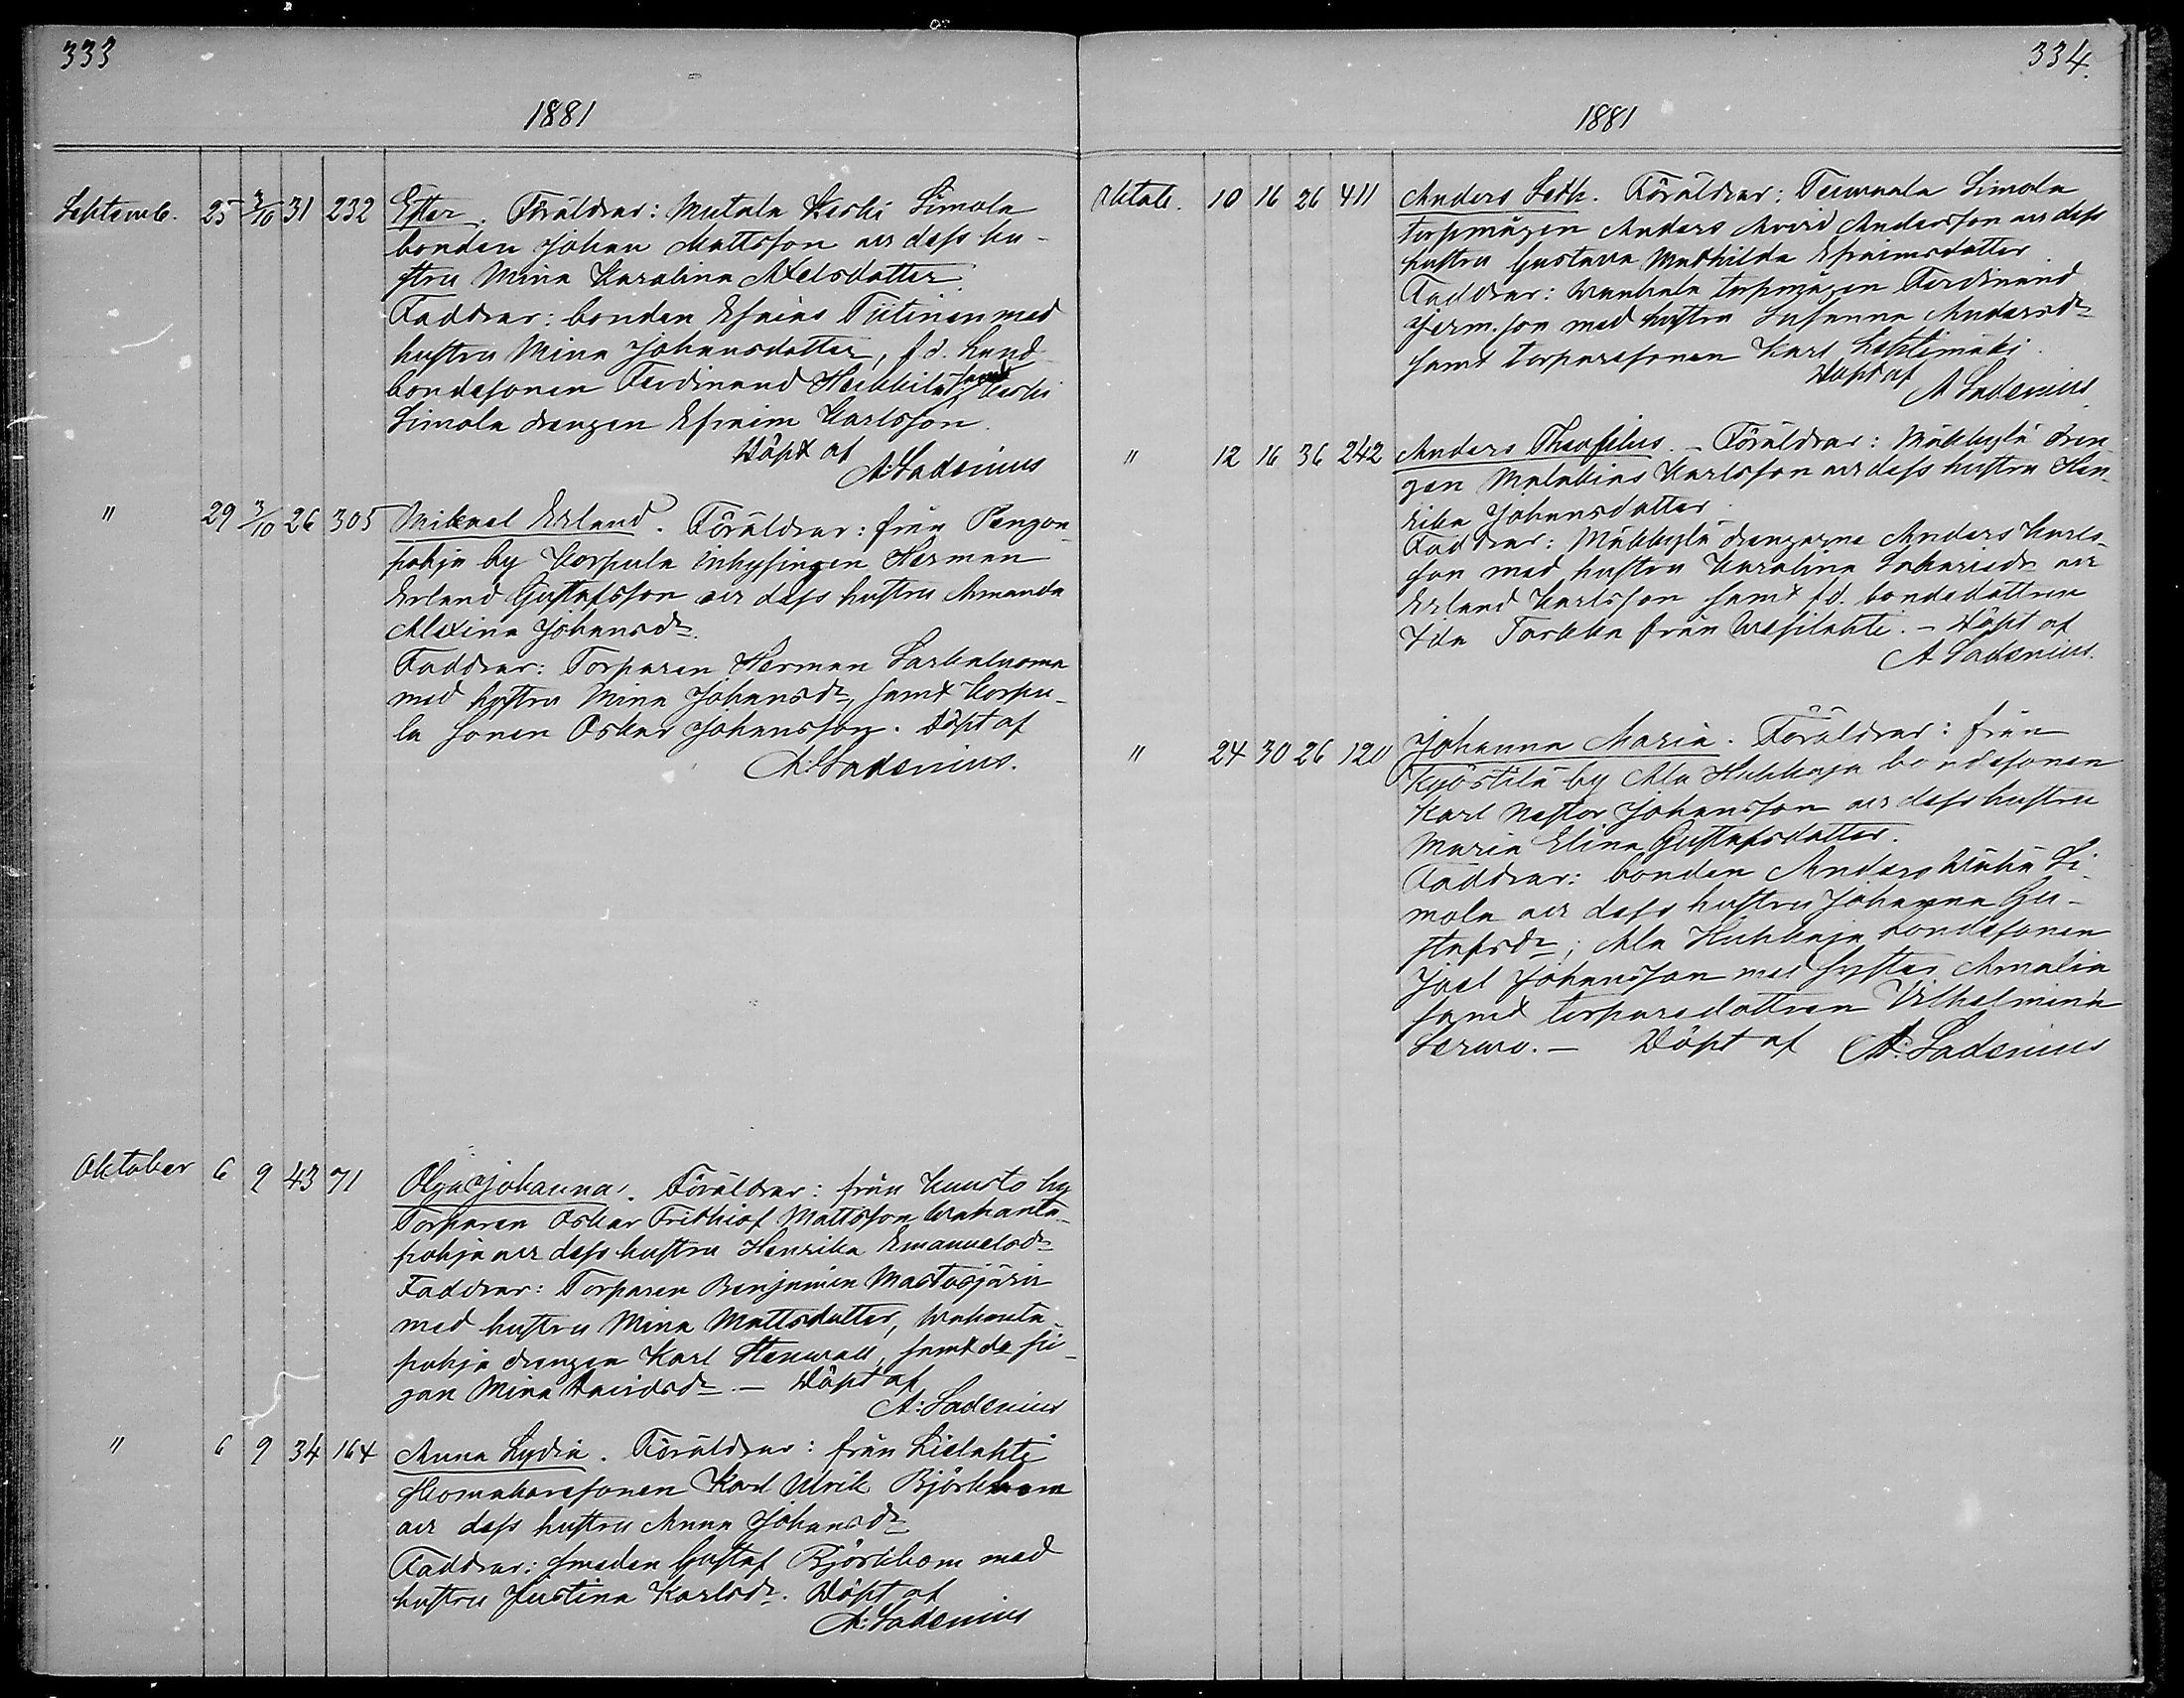 333
1881
Septemb. 25 2/10 31 232 Ester. Föräldrar: Mutala Keski Simola
bonden Johan Mattsson och dess hu-
stru Mina Karolina Axelsdotter.
Faddrar: bonden Efraim Tiitinen med
hustru Mina Johansdotter, f.d. Lund
bondesonen Ferdinand Heikkilä samt Keski
Simola drängen Efraim Karlsson.
Döpt af
A: Ladenius
" 29 3/10 26 305 Mikael Erland. Föräldrar: från Pengon-
pohja by Korpula inhysingen Herman
Erland Gustafsson och dess hustru Amanda
Alexina Johansdr.
Faddrar: Torparen Herman Sarkaluoma
med hustru Mina Johansdr, samt Korpu-
la sonen Oskar Johansson. Döpt af
A: Ladenius.
Oktober 6 9 43 71 Olga Johanna. Föräldrar: från Kuusto by
Torparen Oskar Frithiof Mattsson Wahanta-
pohja och dess hustru Henrika Emanuelsdr
Faddrar: Torparen Benjamin Mastosjärvi
med hustru Mina Mattsdotter, Wahanta-
pohja drängen Karl Stenwall, samt de pi-
gan Mina Davidsdr. — Döpt af
A: Ladenius
" 6 9 34 164 Anna Lydia. Föräldrar: från Lielahti
skomakaresonen Karl Ulrik Björkbom
och dess hustru Anna Johansdr
Faddrar: smeden Gustaf Björkbom med
hustru Justina Karlsdr. Döpt af
A: Ladenius
334.
1881
Oktob. 10 16 26 411 Anders Seth. Föräldrar: Terwaala Simola
torpmågen Anders Arvid Andersson och dess
hustru Gustava Mathilda Efraimsdotter
Faddrar: Wankala torpmågen Ferdinand
Jerm.son med hustru Susanna Andersdr
samt torparesonen Karl Lehtimäki.
Döpt af
A Ladenius.
" 12 16 36 242 Anders Theofilus. — Föräldrar: Mäkkylä drän-
gen Malakias Karlsson och dess hustru Hen-
rika Johansdotter.
Faddrar: Mäkkylä drängarne Anders Karls-
son med hustru Karolina Sakarisdr och
Erland Karlsson samt f.d. bondedottren
Ida Torkka från Wesilahti. — Döpt af
A Ladenius.
" 24 30 26 120 Johanna Maria. Föräldrar: från
Kyöstilä by Ala Hukkaja bondesonen
Karl Nestor Johansson och dess hustru
Maria Elina Gustafsdotter.
Faddrar: bonden Anders Wähä Si-
mola och dess hustru Johanna Gu-
stafsdr; Ala Hukkaja bondesonen
Joel Johansson med syster Amalia
samt torparedottren Vilhelmina
Lerwo. — Döpt af A: Ladenius